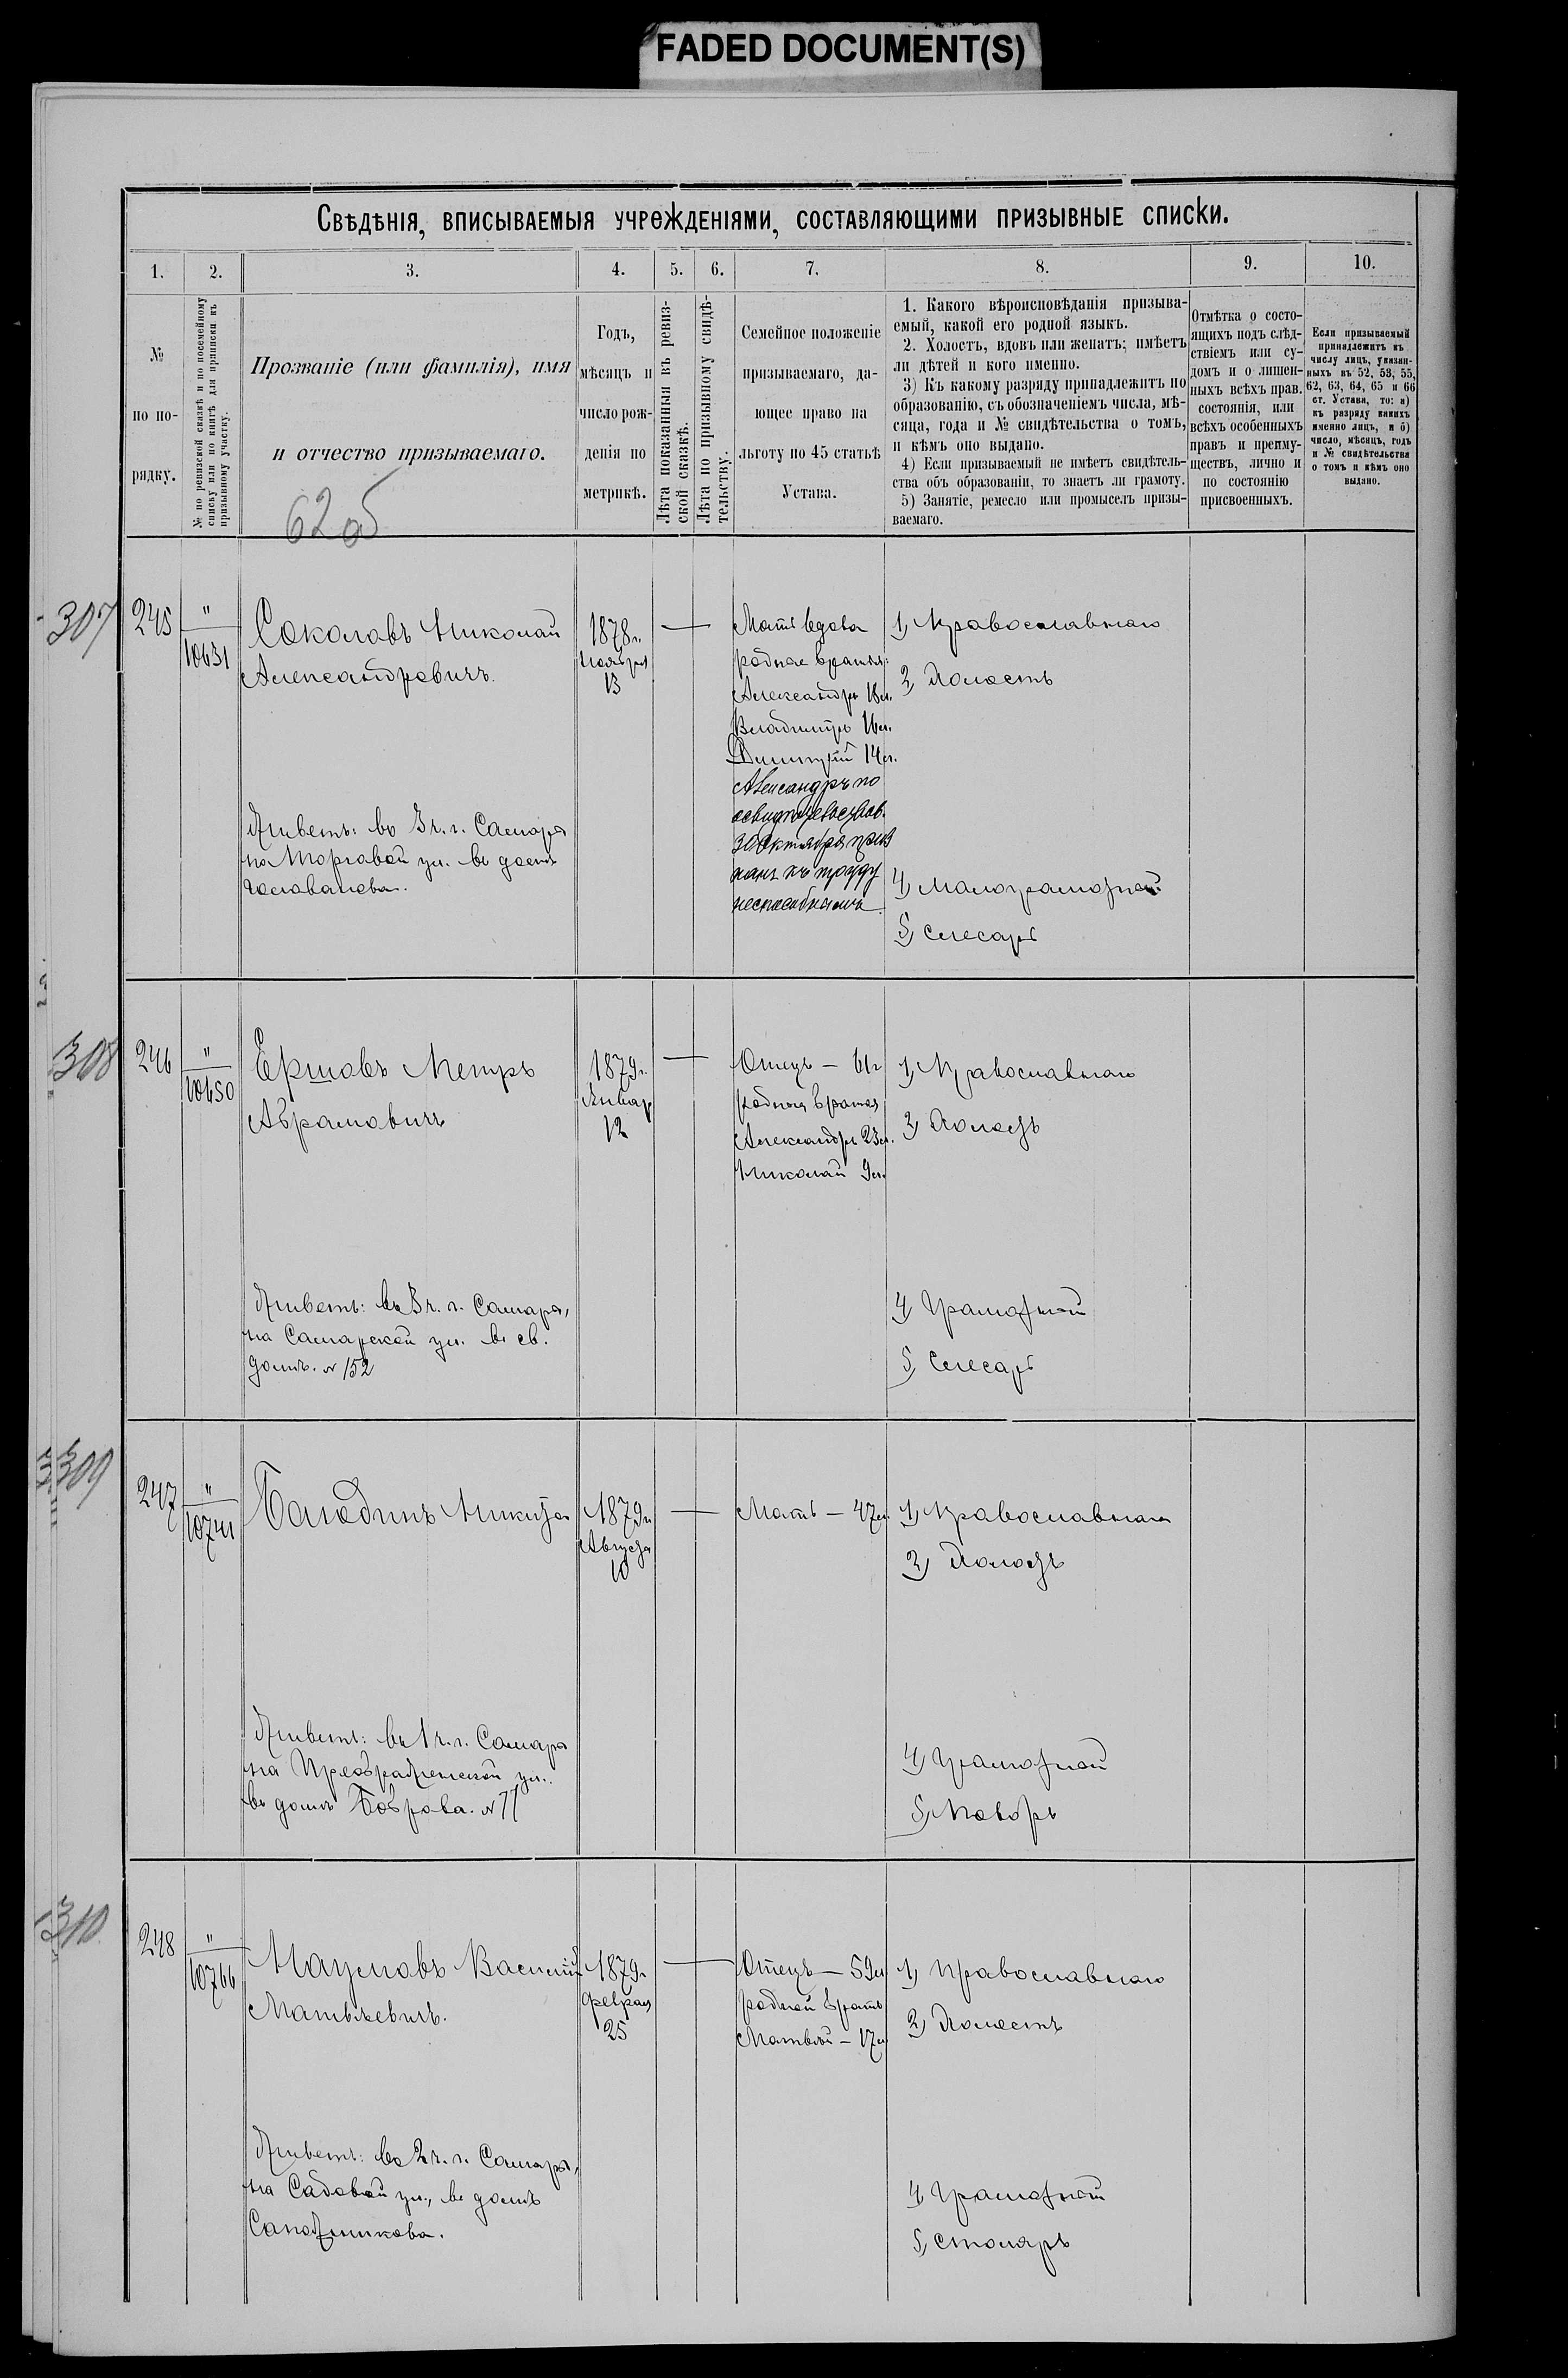 FADED DOCUMENT(S)
Свѣдѣнія, вписываемыя учрежденіями, составляющими призывные списки.
1. 2. 3. 4. 5. 6. 7. 8. 9. 10.
№
по по-
рядку.
№ по ревизской сказкѣ и по посемейному
списку или по книгѣ для приписки къ
призывному участку.
Прозваніе (или фамилія), имя
и отчество призываемаго.
62 об
Годъ,
мѣсяцъ и
число рож-
денія по
метрикѣ.
Лѣта показанныя въ ревиз-
ской сказкѣ.
Лѣта по призывному свидѣ-
тельству.
Семейное положеніе
призываемаго, да-
ющее право на
льготу по 45 статьѣ
Устава.
1. Какого вѣроисповѣданія призыва-
емый, какой его родной языкъ.
2. Холостъ, вдовъ или женатъ; имѣетъ
ли дѣтей и кого именно.
3) Къ какому разряду принадлежитъ по
образованію, съ обозначеніемъ числа, мѣ-
сяца, года и № свидѣтельства о томъ,
и кѣмъ оно выдано.
4) Если призываемый не имѣетъ свидѣтель-
ства объ образованіи, то знаетъ ли грамоту.
5) Занятіе, ремесло или промыселъ призы-
ваемаго.
Отмѣтка о состо-
ящихъ подъ слѣд-
ствіемъ или су-
домъ и о лишен-
ныхъ всѣхъ прав.
состоянія, или
всѣхъ особенныхъ
правъ и преиму-
ществъ, лично и
по состоянію
присвоенныхъ.
Если призываемый
принадлежитъ къ
числу лицъ, указан-
ныхъ въ 52, 53, 55,
62, 63, 64, 65 и 66
ст. Устава, то: а)
къ разряду какихъ
именно лицъ, и б)
число, мѣсяцъ, годъ
и № свидѣтельства
о томъ и кѣмъ оно
выдано.
307
245
"
10631
Соколовъ Николай
Александровичъ.
Живетъ: въ 3 ч. г. Самара
на Торговой ул. въ домѣ
1878 г.
Ноября
13
Мать вдова
родные братья:
Александръ 18 л.
Владиміръ 16 л.
Димитрій 14 л.
Александръ по
30 Октября приз
нанъ къ труду
неспособнымъ
1) Православнаго
2) Холостъ
4) Малограмотной
5) Слесарь
308
246
"
10650
Ершовъ Петръ
Абрамовичъ
Живетъ: въ 3 ч. г. Самара,
на Самарской ул. въ св.
домѣ. № 152
1879 г.
Январ
12
Отецъ — 61 г
родныя братья
Александръ 23 л.
Николай 9 л.
1) Православнаго
2) Холостъ
4) Грамотной
5) Слесарь
309
247
"
10741
Балодинъ Никита
Живетъ: въ 1 ч. г. Самара
на Преображенской ул.
въ домѣ Боброва. № 77
1879 г
Августа
10
Мать — 47 л.
1) Православнаго
2) Холостъ
4) Грамотной
5) Поваръ
310
248
"
10766
Наумовъ Василій
Матвѣевичъ.
Живетъ: въ 2 ч. г. Самара,
на Садовой ул., въ домѣ
Сапожникова.
1879 г
Феврал
25
Отецъ — 59 л
родной братъ
Матвѣй — 17 л
1) Православнаго
2) Холостъ
4) Грамотной
5) Столяръ